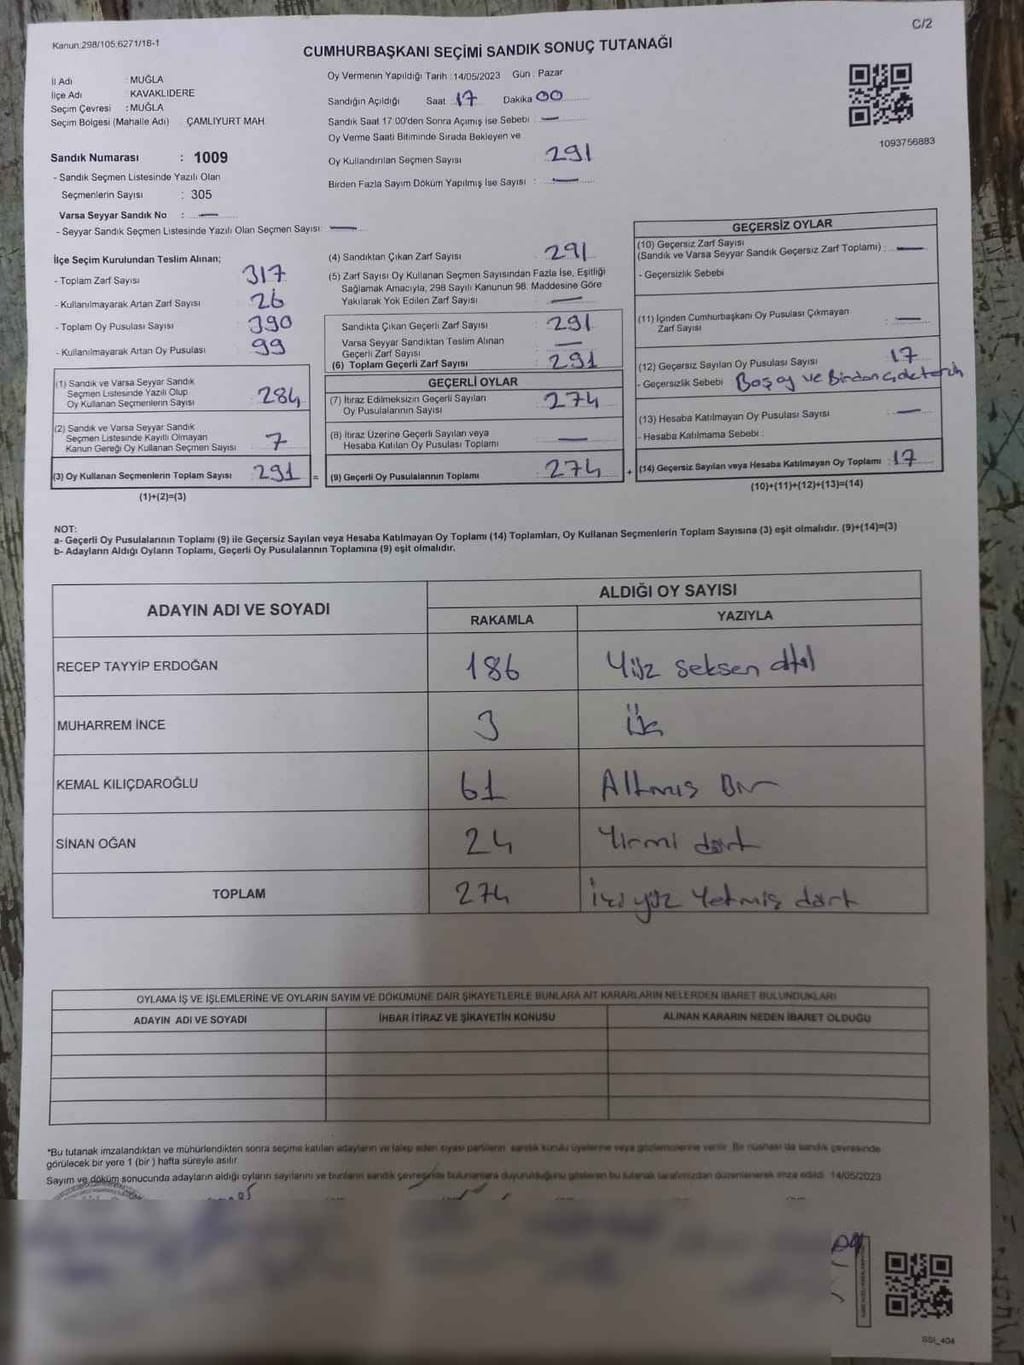 C/2
Kanun:298/105;6271/18-1
CUMHURBAŞKANI SEÇİMİ SANDIK SONUÇ TUTANAĞI
İl Adı : MUĞLA
İlçe Adı : KAVAKLIDERE
Seçim Çevresi : MUĞLA
Seçim Bölgesi (Mahalle Adı) : ÇAMLIYURT MAH
Sandık Numarası : 1009
- Sandık Seçmen Listesinde Yazılı Olan
Seçmenlerin Sayısı : 305
Varsa Seyyar Sandık No : —
- Seyyar Sandık Seçmen Listesinde Yazılı Olan Seçmen Sayısı: —
Oy Vermenin Yapıldığı Tarih :14/05/2023 Gün : Pazar
Sandığın Açıldığı Saat 17 Dakika 00
Sandık Saat 17.00'den Sonra Açımış İse Sebebi : —
Oy Verme Saati Bitiminde Sırada Bekleyen ve
Oy Kullandırılan Seçmen Sayısı 291
Birden Fazla Sayım Döküm Yapılmış İse Sayısı : —
1093756883
İlçe Seçim Kurulundan Teslim Alınan;
- Toplam Zarf Sayısı 317
- Kullanılmayarak Artan Zarf Sayısı 26
- Toplam Oy Pusulası Sayısı 390
- Kullanılmayarak Artan Oy Pusulası 99
(1) Sandık ve Varsa Seyyar Sandık
Seçmen Listesinde Yazılı Olup
Oy Kullanan Seçmenlerin Sayısı 284
(2) Sandık ve Varsa Seyyar Sandık
Seçmen Listesinde Kayıtlı Olmayan
Kanun Gereği Oy Kullanan Seçmen Sayısı 7
(3) Oy Kullanan Seçmenlerin Toplam Sayısı 291 =
(1)+(2)=(3)
(4) Sandıktan Çıkan Zarf Sayısı : 291
(5) Zarf Sayısı Oy Kullanan Seçmen Sayısından Fazla İse, Eşitliği
Sağlamak Amacıyla, 298 Sayılı Kanunun 98. Maddesine Göre
Yakılarak Yok Edilen Zarf Sayısı : —
Sandıkta Çıkan Geçerli Zarf Sayısı : 291
Varsa Seyyar Sandıktan Teslim Alınan
Geçerli Zarf Sayısı : —
(6) Toplam Geçerli Zarf Sayısı : 291
GEÇERLİ OYLAR
(7) İtiraz Edilmeksizin Geçerli Sayılan
Oy Pusulalarının Sayısı : 274
(8) İtiraz Üzerine Geçerli Sayılan veya
Hesaba Katılan Oy Pusulası Toplamı : —
(9) Geçerli Oy Pusulalarının Toplamı : 274 +
GEÇERSİZ OYLAR
(10) Geçersiz Zarf Sayısı
(Sandık ve Varsa Seyyar Sandık Geçersiz Zarf Toplamı) : —
- Geçersizlik Sebebi
(11) İçinden Cumhurbaşkanı Oy Pusulası Çıkmayan
Zarf Sayısı : —
(12) Geçersiz Sayılan Oy Pusulası Sayısı : 17
- Geçersizlik Sebebi Boş oy ve Birden
(13) Hesaba Katılmayan Oy Pusulası Sayısı : —
- Hesaba Katılmama Sebebi :
(14) Geçersiz Sayılan veya Hesaba Katılmayan Oy Toplamı : 17
(10)+(11)+(12)+(13)=(14)
NOT:
a- Geçerli Oy Pusulalarının Toplamı (9) ile Geçersiz Sayılan veya Hesaba Katılmayan Oy Toplamı (14) Toplamları, Oy Kullanan Seçmenlerin Toplam Sayısına (3) eşit olmalıdır. (9)+(14)=(3)
b- Adayların Aldığı Oyların Toplamı, Geçerli Oy Pusulalarının Toplamına (9) eşit olmalıdır.
ADAYIN ADI VE SOYADI
ALDIĞI OY SAYISI
RAKAMLA YAZIYLA
RECEP TAYYİP ERDOĞAN 186 Yüz seksen altı
MUHARREM İNCE 3 Üç
KEMAL KILIÇDAROĞLU 61 Altmış Bir
SİNAN OĞAN 24 Yirmi dört
TOPLAM 274 İki yüz Yetmiş dört
OYLAMA İŞ VE İŞLEMLERİNE VE OYLARIN SAYIM VE DÖKÜMÜNE DAİR ŞİKAYETLERLE BUNLARA AİT KARARLARIN NELERDEN İBARET BULUNDUKLARI
ADAYIN ADI VE SOYADI İHBAR İTİRAZ VE ŞİKAYETİN KONUSU ALINAN KARARIN NEDEN İBARET OLDUĞU
*Bu tutanak imzalandıktan ve mühürlendikten sonra seçime katılan adayların ve talep eden siyasi partilerin sandık kurulu üyelerine veya gözlemcilerine verilir. Bir nüshası da sandık çevresinde
görülecek bir yere 1 (bir ) hafta süreyle asılır.
Sayım ve döküm sonucunda adayların aldığı oyların sayılarını ve bunların sandık çevresinde bulunanlara duyurulduğunu gösteren bu tutanak tarafımızdan düzenlenerek imza edildi. 14/05/2023
SSI_404